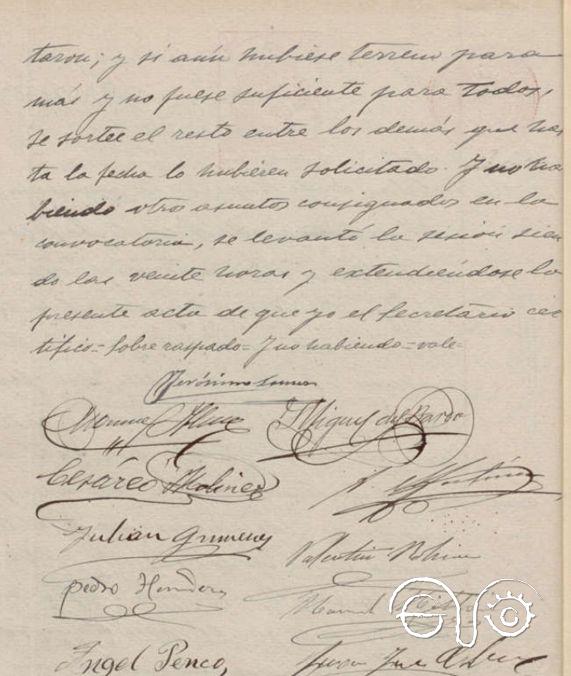 taron; y si aún hubiese terreno para
más y no fuese suficiente para todos,
se sortee el resto entre los demás que has
ta la fecha lo hubieren solicitado. Y no ha
biendo otro asuntos consignados en la
convocatoria, se levantó la sesión sien
do las veinte horas y extendiéndose la
presente acta de que yo el Secretario cer
tifico= Sobre raspado= Y no habiendo=vale=
Jerónimo
Miguel del Barrio
Cesáreo Molinero
Martínez
Julián
Valentín
Pedro
Manuel
Angel Penco,
Juan José